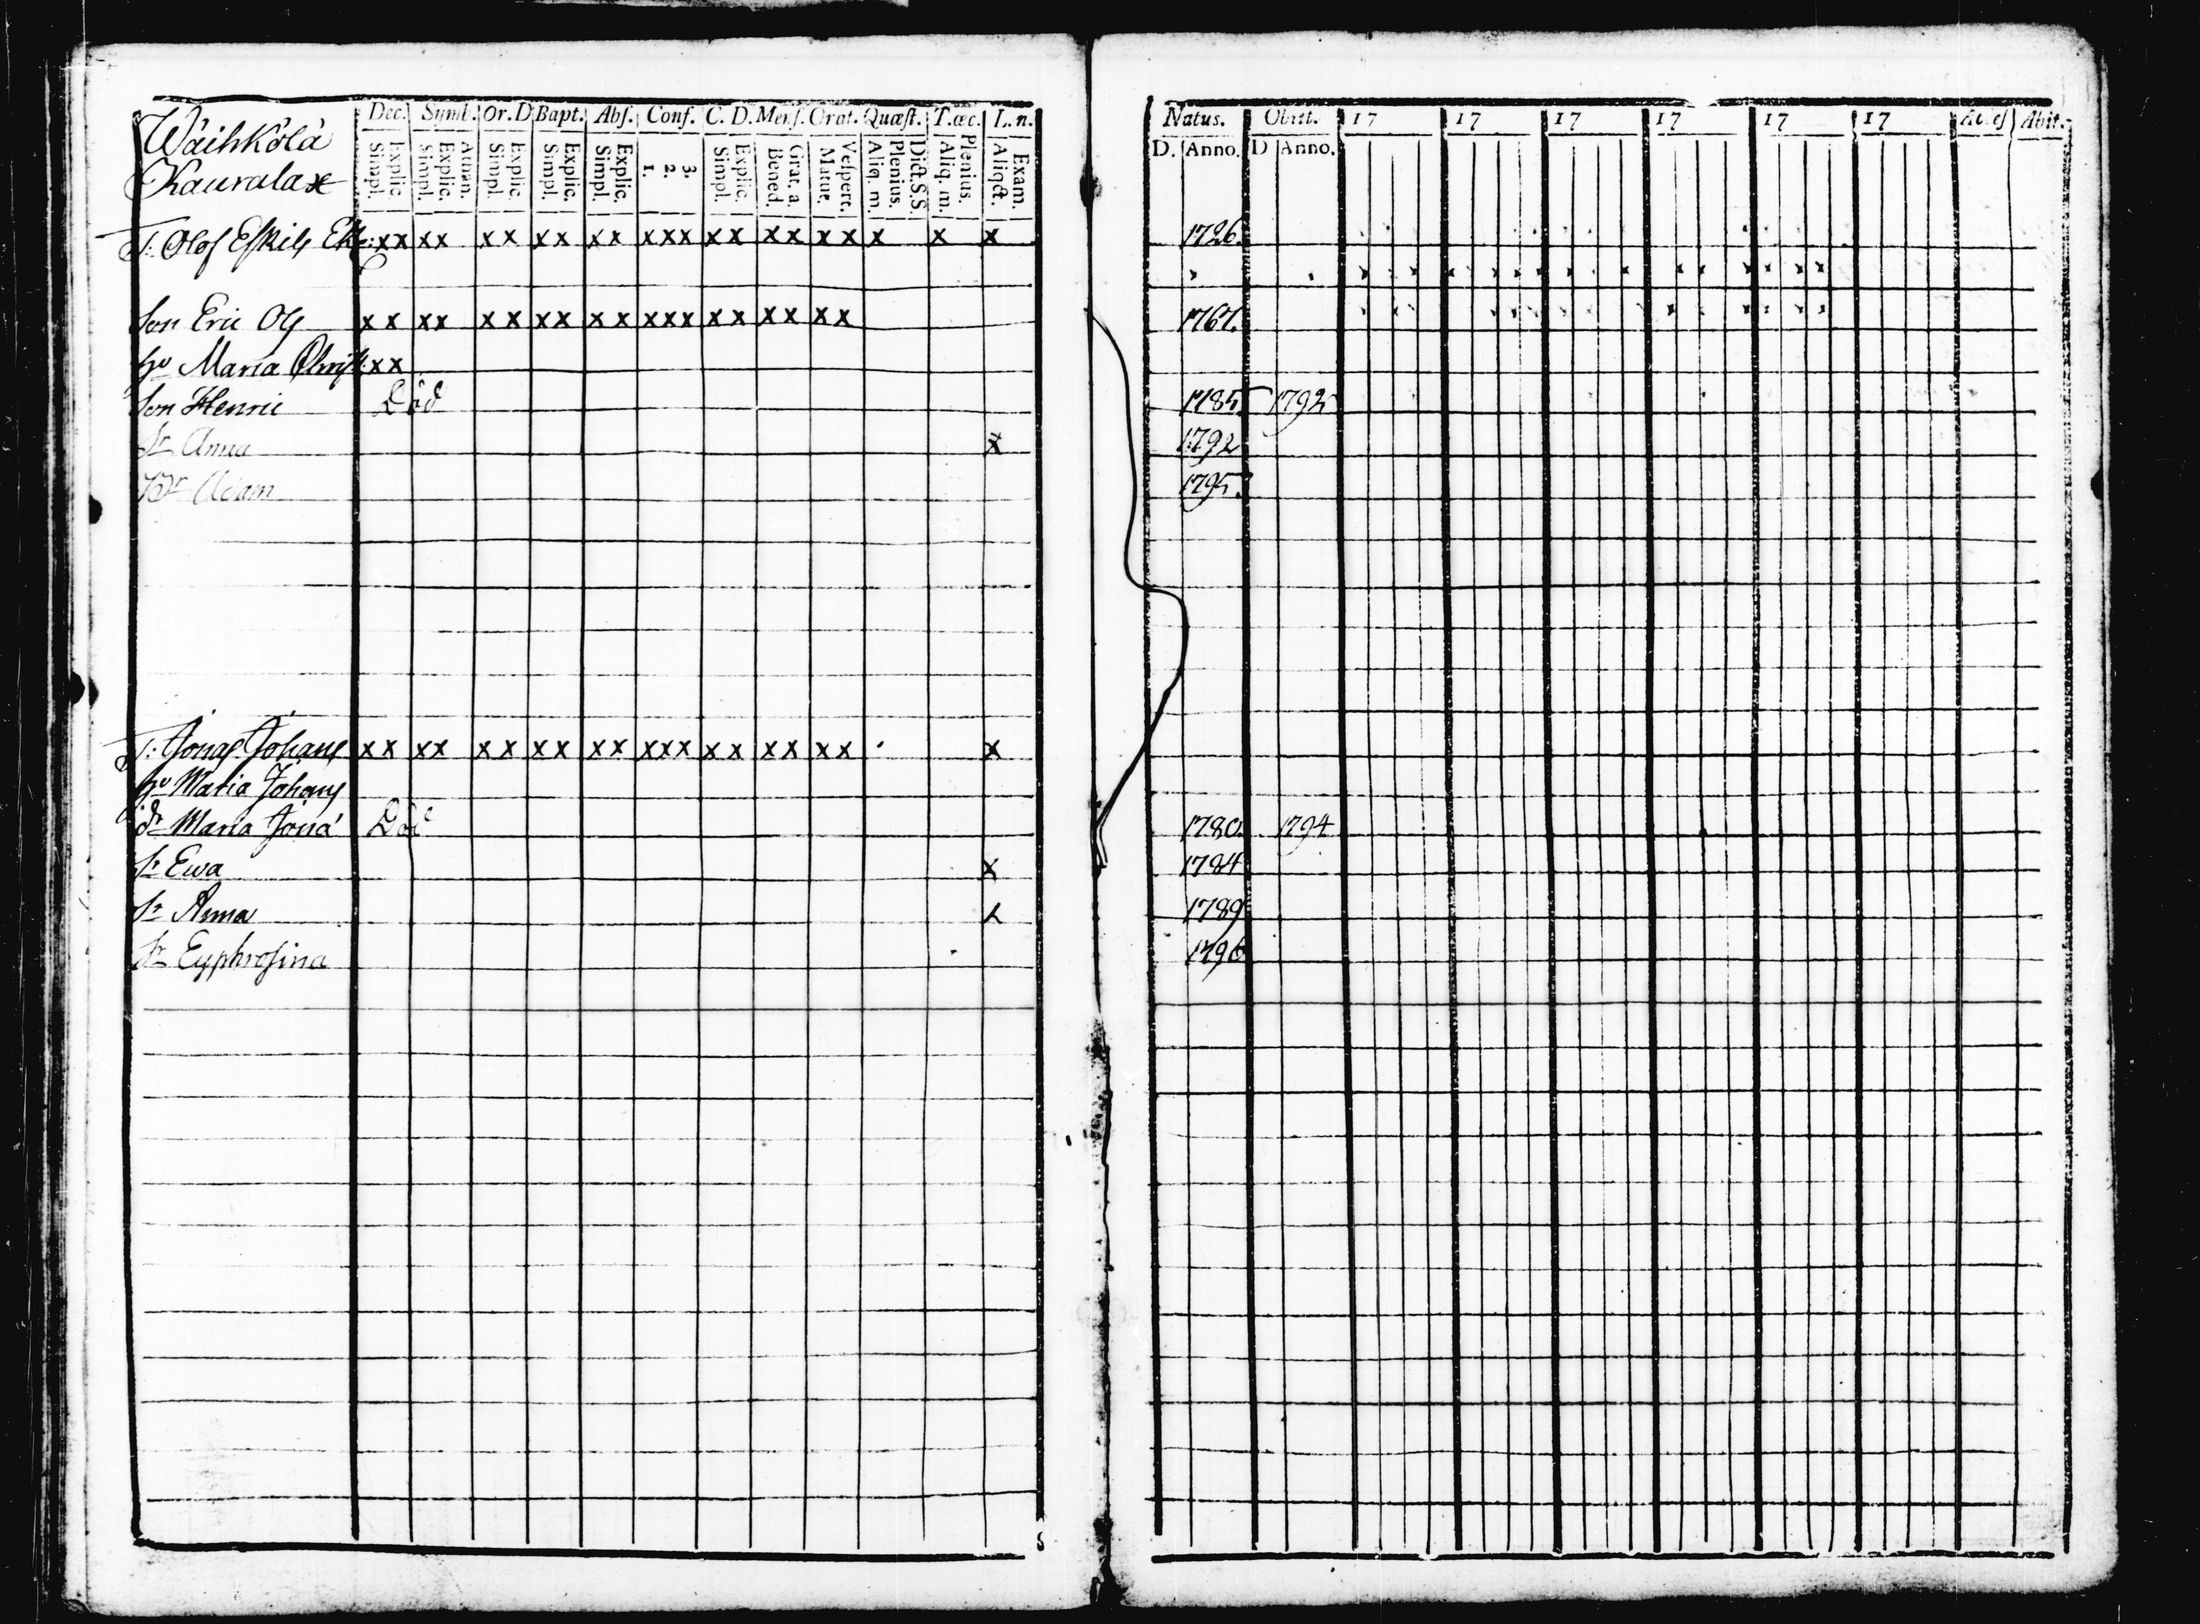 Wäihkölä
Kauralax
Dec. Symb. Or. D Bapt. Abs. Conf. C. D. Mens. Orat. Quæst. T. œc. L. n.
Explic. Simpl. Athan. Explic. Simpl. Explic. Simpl. Explic. Simpl. Explic. Simpl. 3. 2. 1. Explic. Simpl. Grat. a. Bened. Vespert. Matut. Dict. S. S. Plenius. Aliq. m. Plenius. Aliq. m. Exam. Aliqđt.
Natus. Obiit. 17 17 17 17 17 17 Abiit.
D. Anno. D Anno.
T: Olof Eskils xx xx xx xx xx xxx xx xx xx x x x 1726.
Son Eric Ols xx xx xx xx xx xxx xx xx xx 1767.
hu Maria xx
Son Henric Död 1785 1792
Sr Anna x 1792
Br Adam 1795.
T: Jonas Johans xx xx xx xx xx xxx xx xx xx x
hu Maria Johans
dr Maria Jona Död 1780 1794
Sr Ewa x 1784
Sr Anna x 1789
Sr Euphrosina 1796